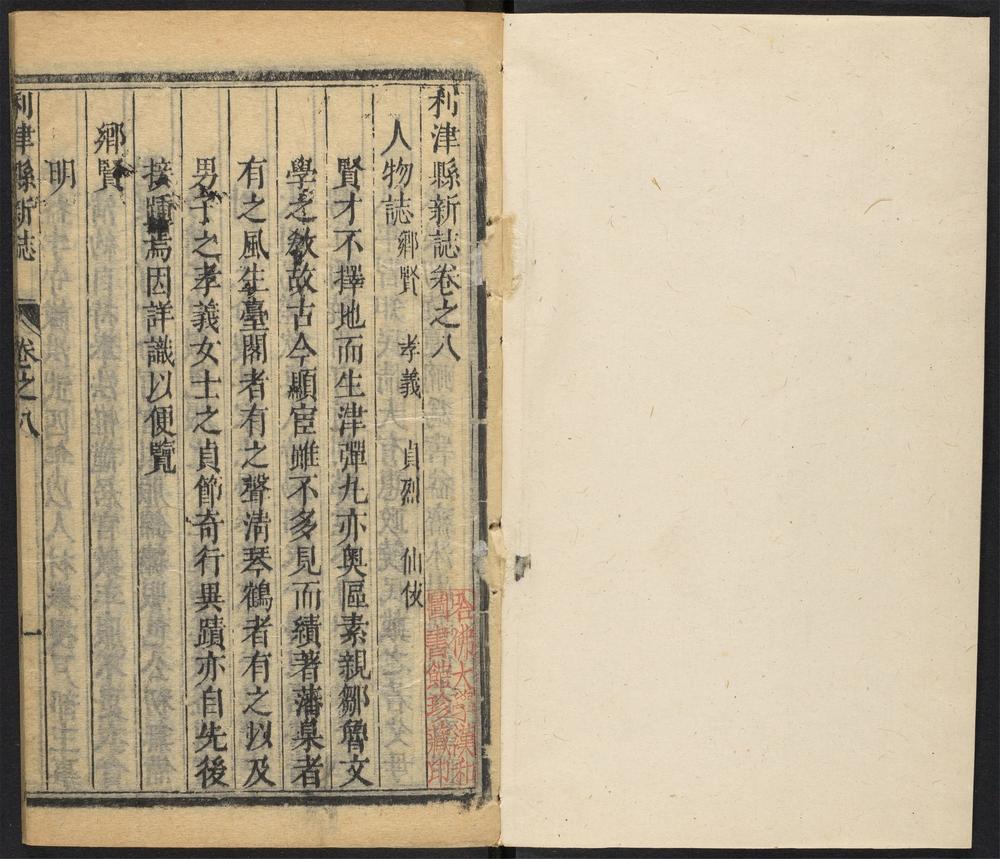 利津縣新誌卷之八
人物誌 鄉賢 孝義 貞烈 仙伎
賢才不擇地而生津彈丸亦奧區素親鄒魯文
學之敎故古今顯宦雖不多見而績著藩臬者
有之風生臺閣者有之聲清琴鶴者有之以及
男子之孝義女士之貞節奇行異蹟亦自先後
接踵焉因詳識以便覽
鄉賢
明
利津縣新誌 卷之八 一
哈佛大學漢和
圖書館珍藏印